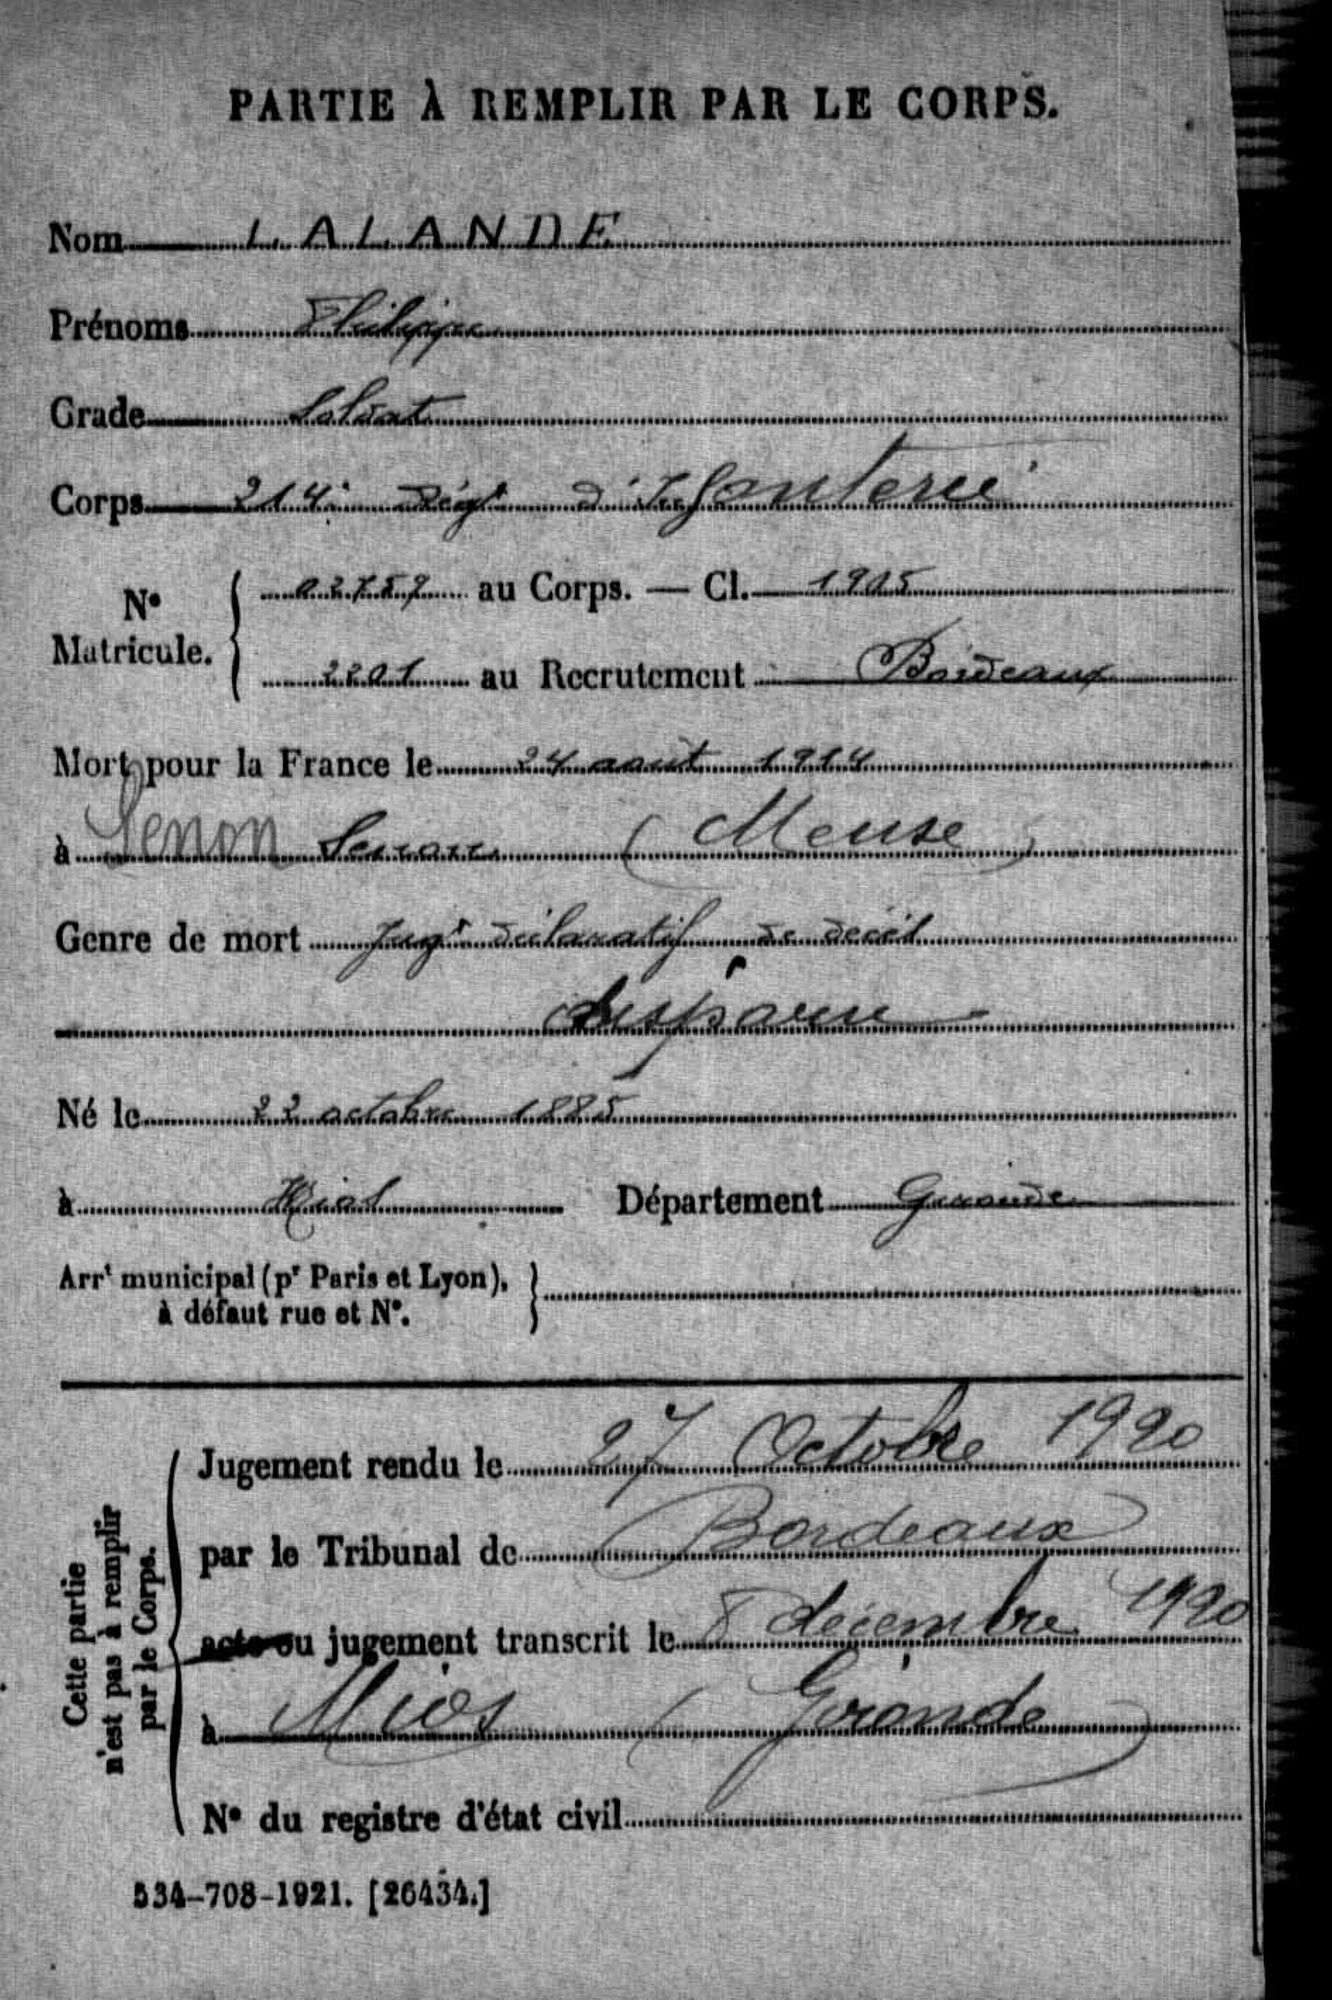 PARTIE À REMPLIR PAR LE CORPS.
Nom LALANDE
Prénoms Philippe
Grade Soldat
Corps 214e Régt d'Infanterie
N° Matricule. 02759 au Corps. — Cl. 1905
2201 au Recrutement Bordeaux
Mort pour la France le 24 août 1914
à Senon Senon (Meuse)
Genre de mort Jugt déclaratif de décès
disparu
Né le 22 octobre 1885
à Mios Département Gironde
Arrt municipal (pr Paris et Lyon),
à défaut rue et N°.
Cette partie
n'est pas à remplir
par le Corps.
Jugement rendu le 27 Octobre 1920
par le Tribunal de Bordeaux
acte ou jugement transcrit le 8 décembre 1920
à Mios (Gironde)
N° du registre d'état civil
534-708-1921. [26434.]